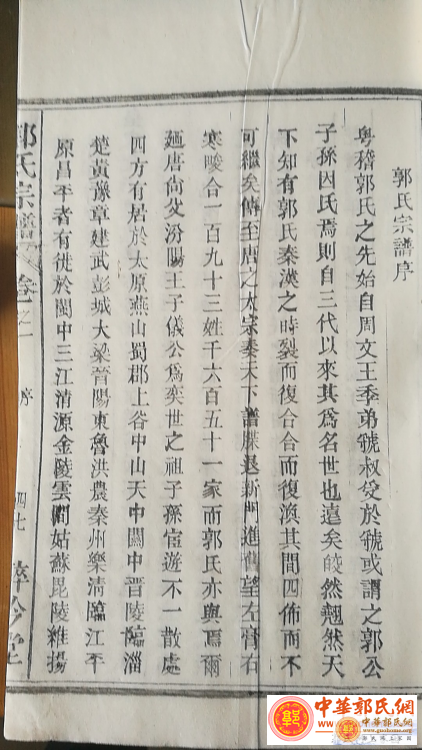 郭氏宗譜序
粵稽郭氏之先始自周文王季弟虢叔受於虢或謂之郭公
子孫因氏焉則自三代以來其爲名世也遠矣皎然翹然天
下知有郭氏秦漢之時裂而復合合而復渙其間四佈而不
可繼矣傳至唐之太宗奏天下譜牒退新門進舊望左膏右
寒晙合一百九十三姓千六百五十一家而郭氏亦與焉爾
廼唐尙父汾陽王子儀公爲奕世之祖子孫宦遊不一散處
四方有居於太原燕山蜀郡上谷中山天中關中晋陵臨淄
楚黃豫章建武彭城大梁晉陽東魯洪農秦州樂清臨江平
原昌平者有徙於閩中三江清源金陵雲間姑蘇毘陵維揚
郭氏宗譜 卷之一 序 四七
中華郭氏網
中華郭氏網
www.guohome.org